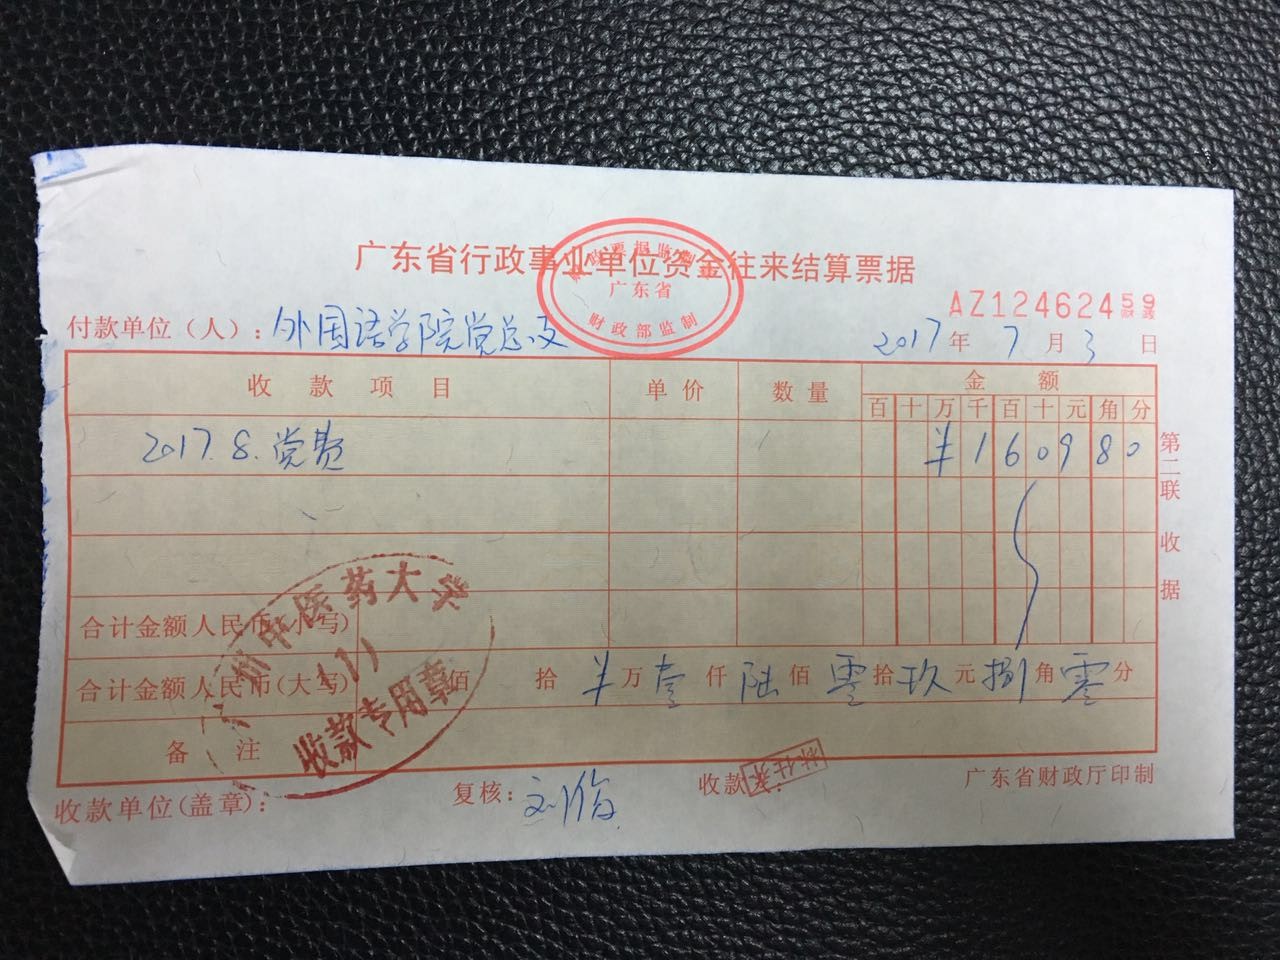 广东省行政事业单位资金往来结算票据
财政票据监制章
广东省
财政部监制
AZ12462459
付款单位（人）：外国语学院党总支
2017年7月3日
收款项目 单价 数量 金额
百 十 万 千 百 十 元 角 分
2017.8.党费 ¥1609 80
第二联 收据
合计金额人民币(小写)
合计金额人民币(大写) 佰 拾 ¥万壹仟陆佰零拾玖元捌角零分
备注
广州中医药大学
(1)
收款专用章
收款单位(盖章)： 复核： 收款人： 广东省财政厅印制